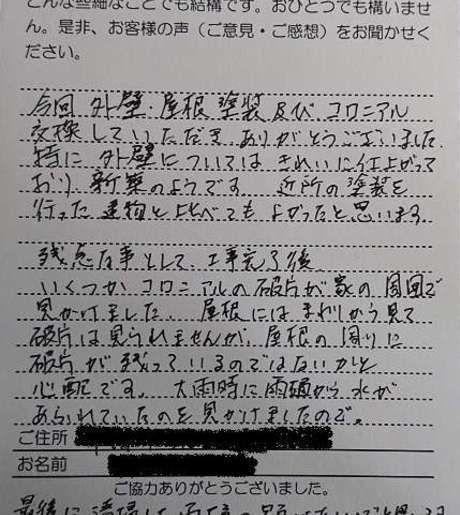 どんな些細なことでも結構です。おひとつでも構いませ
ん。是非、お客様の声（ご意見・ご感想）をお聞かせく
ださい。
今回 外壁・屋根 塗装 及び コロニアル
交換していただき ありがとうございました
特に 外壁については きれいに仕上がって
おり 新築のようです 近所の塗装を
行った 建物と比べても よかったと思います
残念な事として、工事完了後
いくつか コロニアルの破片が家の周囲で
見かけました、屋根には 見
破片は見られませんが、屋根の周りに
破片が残っているのではないかと
心配です。大雨時に雨頭から水が
あふれていたのを見かけましたので。
ご住所
お名前
ご協力ありがとうございました。
最後に 清掃